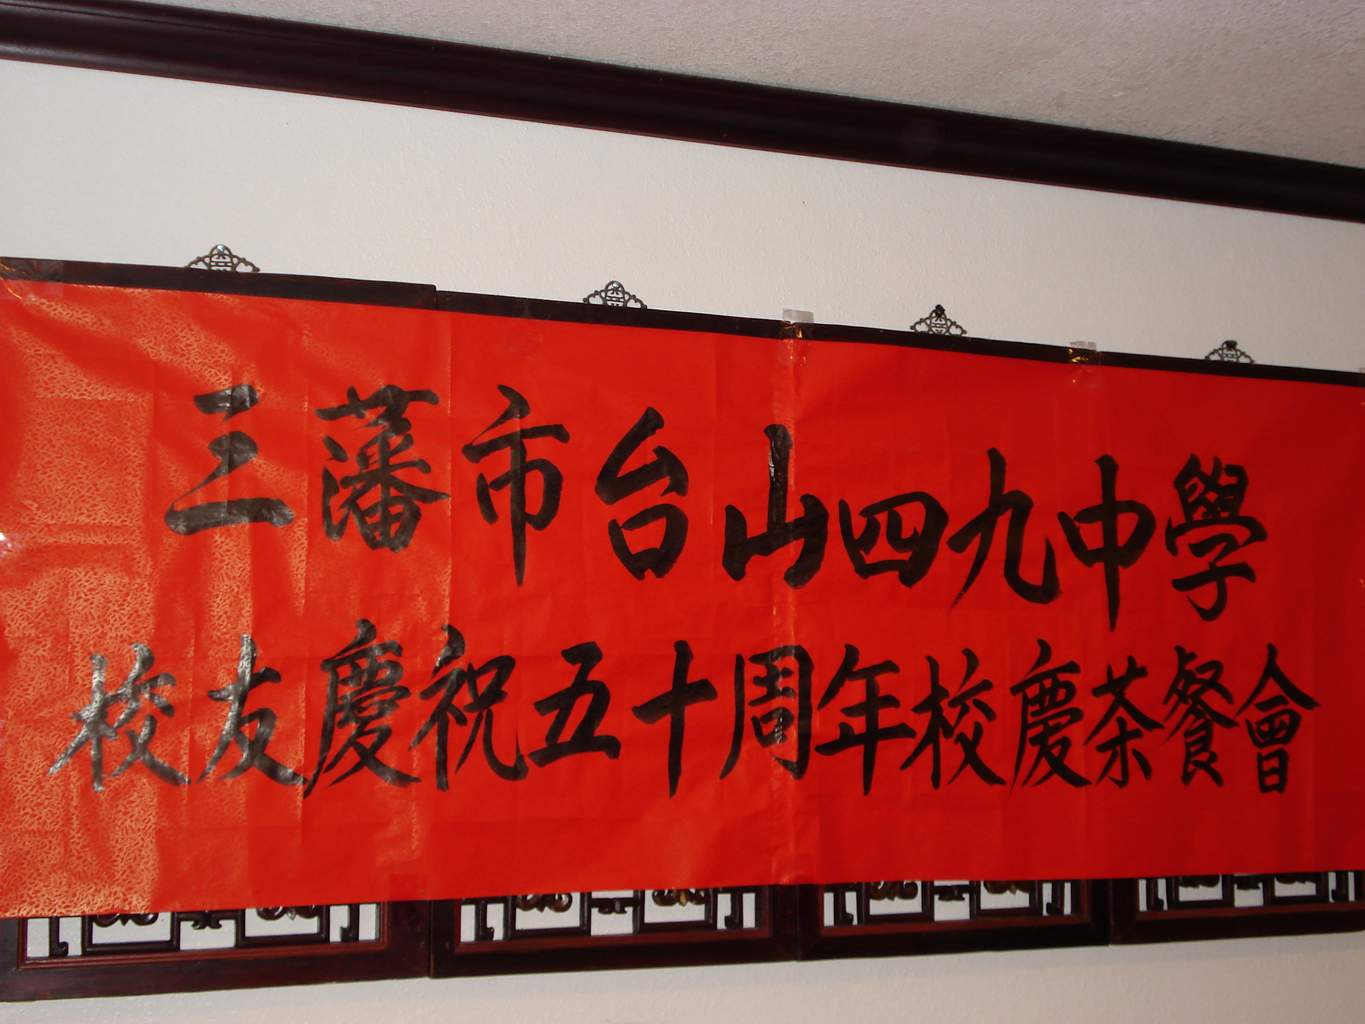 三藩市台山四九中學
校友慶祝五十周年校慶茶餐會